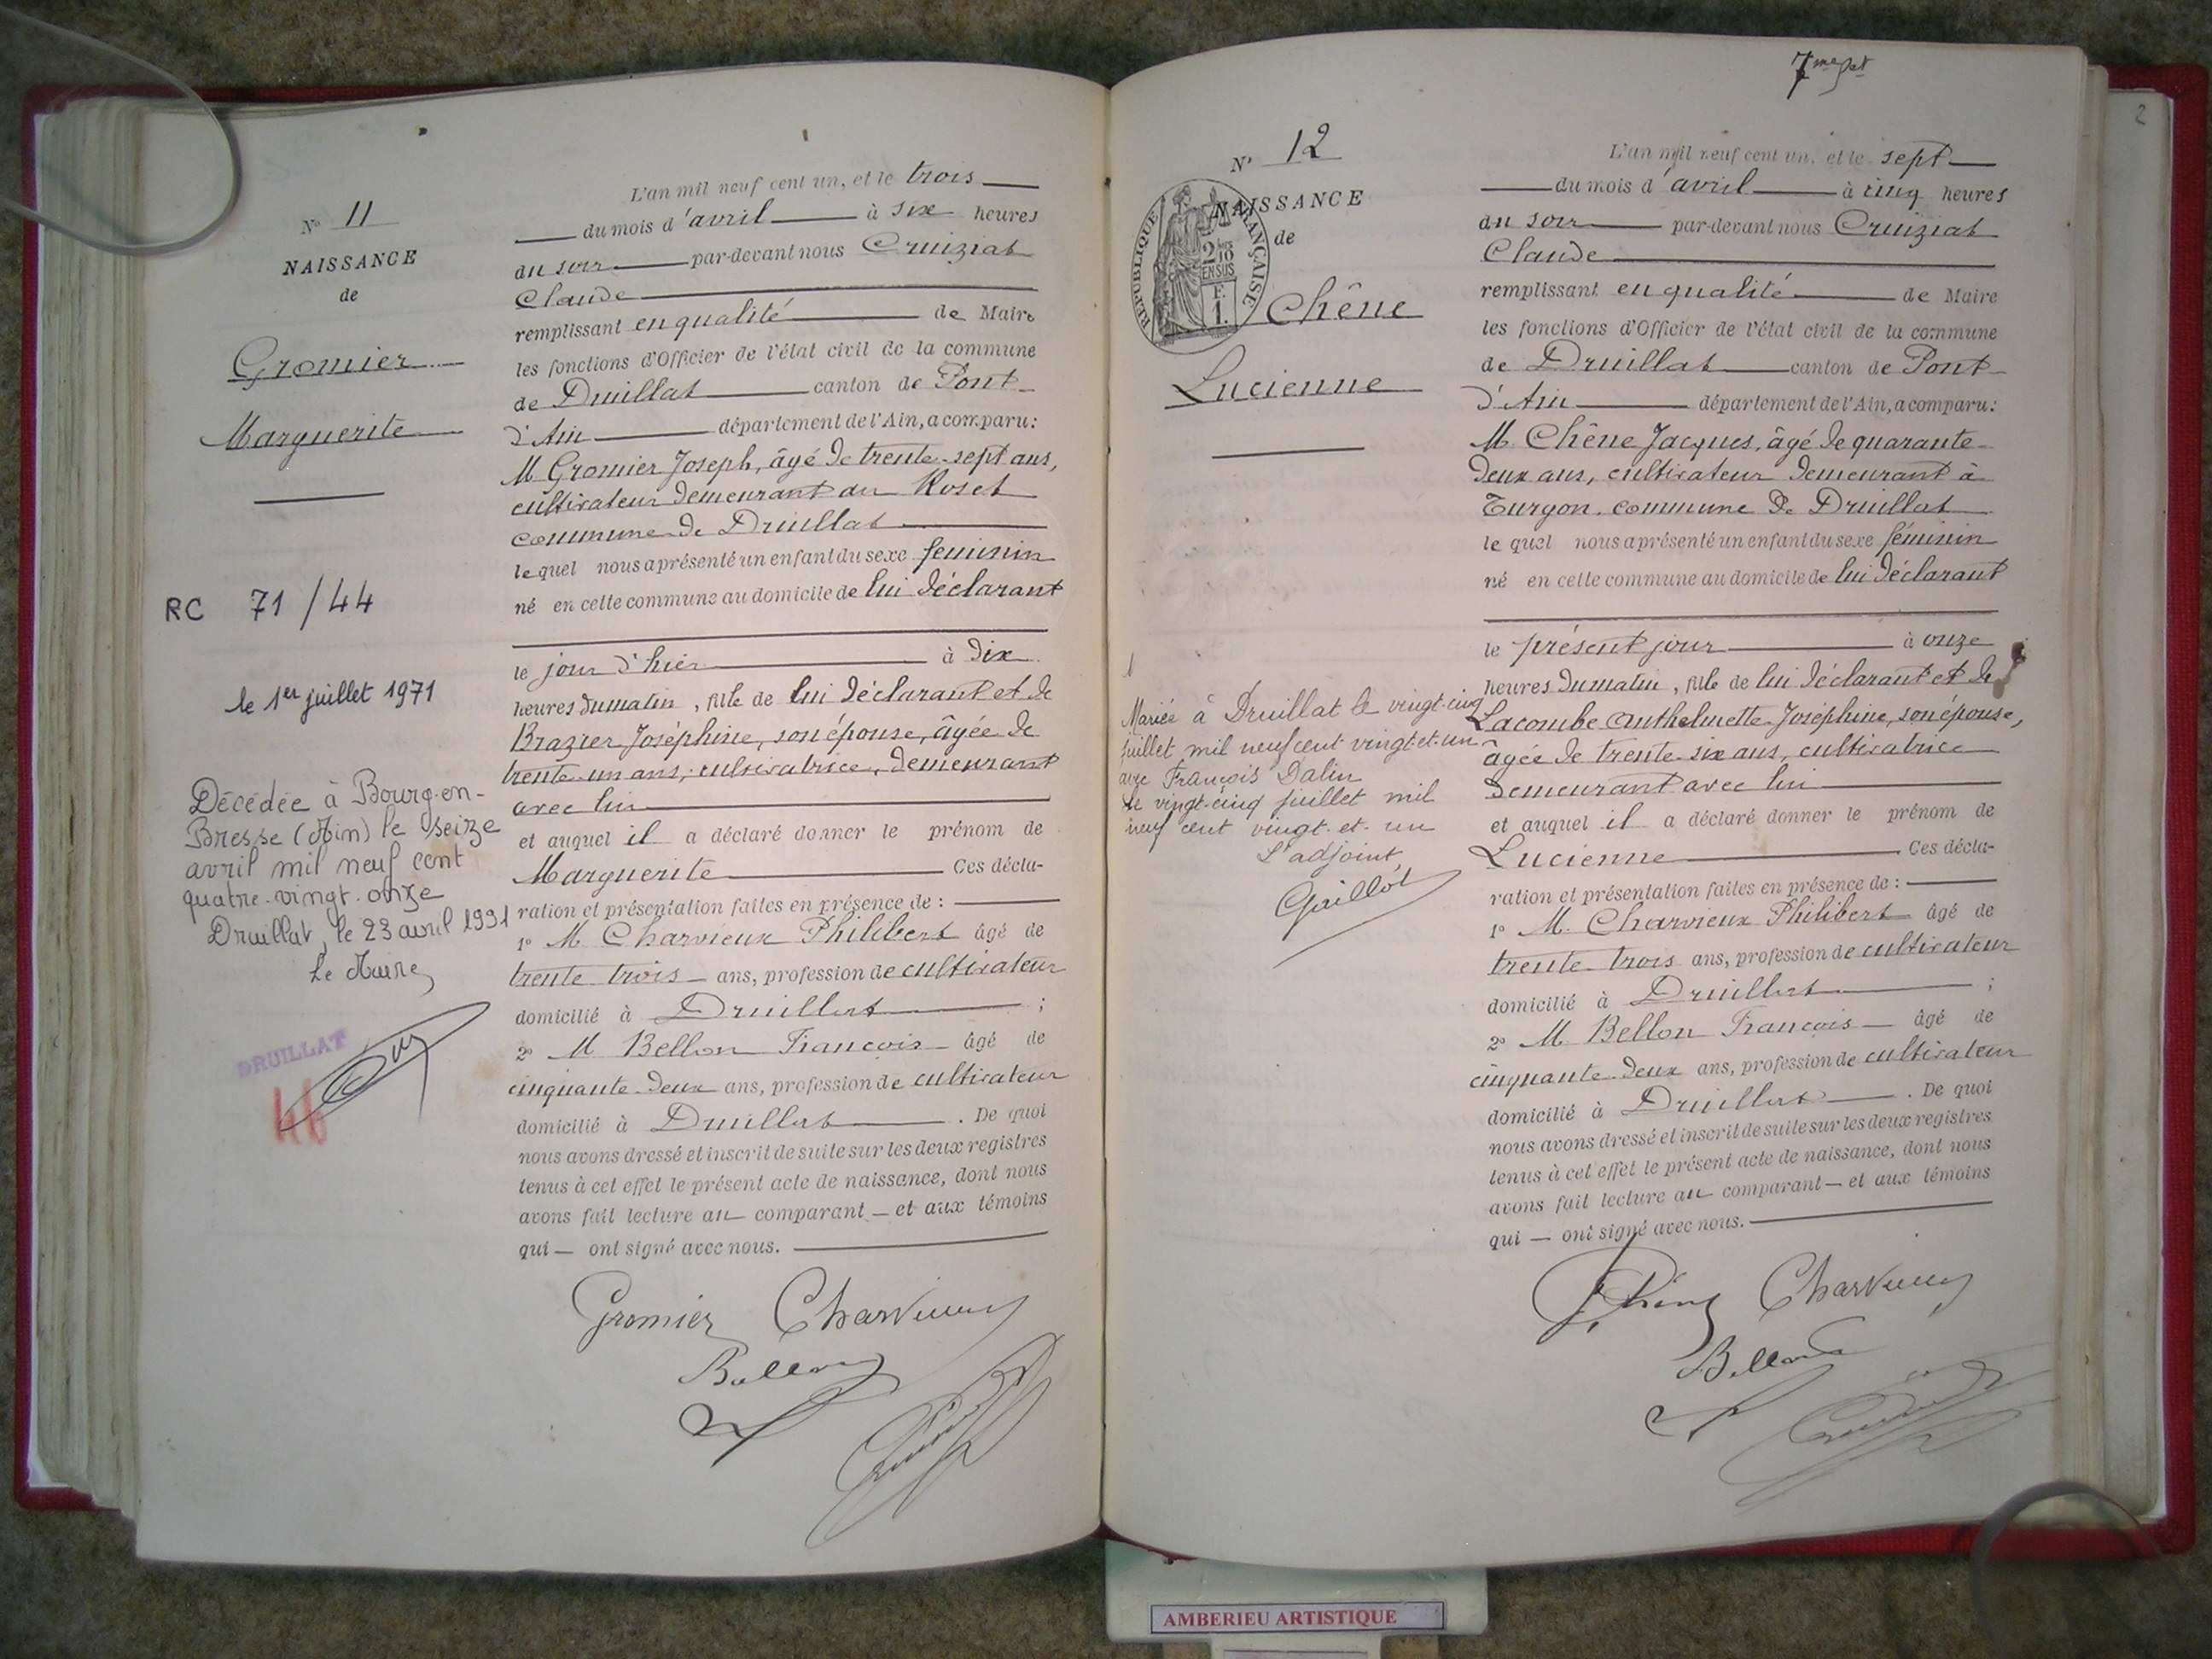 N° 11
NAISSANCE
de
Gromier
Marguerite
RC 71/44
le 1er juillet 1971
Décédée à Bourg-en-
Bresse (Ain) le seize
avril mil neuf cent
quatre-vingt-onze
Druillat, le 23 avril 1991
Le Maire,
DRUILLAT
L'an mil neuf cent un, et le trois
du mois d'avril à six heures
du soir par-devant nous Cruiziat
Claude
remplissant en qualité de Maire
les fonctions d'Officier de l'état civil de la commune
de Druillat canton de Pont
d'Ain département de l'Ain, a comparu:
M Gromier Joseph, âgé de trente-sept ans,
cultivateur demeurant au Roset
commune de Druillat
lequel nous a présenté un enfant du sexe féminin
né en cette commune au domicile de lui déclarant
le jour d'hier à dix
heures du matin, fille de lui déclarant et de
Brazier Joséphine, son épouse, âgée de
trente-un ans, cultivatrice, demeurant
avec lui
et auquel il a déclaré donner le prénom de
Marguerite Ces décla-
ration et présentation faites en présence de :
1° M Charvieux Philibert âgé de
trente trois ans, profession de cultivateur
domicilié à Druillat ;
2° M Bellon François âgé de
cinquante-deux ans, profession de cultivateur
domicilié à Druillat . De quoi
nous avons dressé et inscrit de suite sur les deux registres
tenus à cet effet le présent acte de naissance, dont nous
avons fait lecture au comparant et aux témoins
qui ont signé avec nous.
Gromier Charvieux
Bellon
7me Pet
2
N° 12
NAISSANCE
de
RÉPUBLIQUE FRANÇAISE
2/10
EN SUS
F.
1.
Chêne
Lucienne
Mariée à Druillat le vingt-cinq
juillet mil neuf cent vingt-et-un
avec François Dalin
Le vingt-cinq juillet mil
neuf cent vingt-et-un
L'adjoint,
Guillot
L'an mil neuf cent un, et le sept
du mois d'avril à cinq heures
du soir par-devant nous Cruiziat
Claude
remplissant en qualité de Maire
les fonctions d'Officier de l'état civil de la commune
de Druillat canton de Pont
d'Ain département de l'Ain, a comparu:
M. Chêne Jacques, âgé de quarante-
deux ans, cultivateur demeurant à
Turgon, commune de Druillat
le quel nous a présenté un enfant du sexe féminin
né en cette commune au domicile de lui déclarant
le présent jour à onze
heures du matin, fille de lui déclarant et de
Lacombe Anthelmette Joséphine, son épouse,
âgée de trente-six ans, cultivatrice
demeurant avec lui
et auquel il a déclaré donner le prénom de
Lucienne Ces décla-
ration et présentation faites en présence de :
1° M. Charvieux Philibert âgé de
trente-trois ans, profession de cultivateur
domicilié à Druillat ;
2° M. Bellon François âgé de
cinquante-deux ans, profession de cultivateur
domicilié à Druillat . De quoi
nous avons dressé et inscrit de suite sur les deux registres
tenus à cet effet le présent acte de naissance, dont nous
avons fait lecture au comparant et aux témoins
qui ont signé avec nous.
Chêne Charvieux
Bellon
AMBERIEU ARTISTIQUE